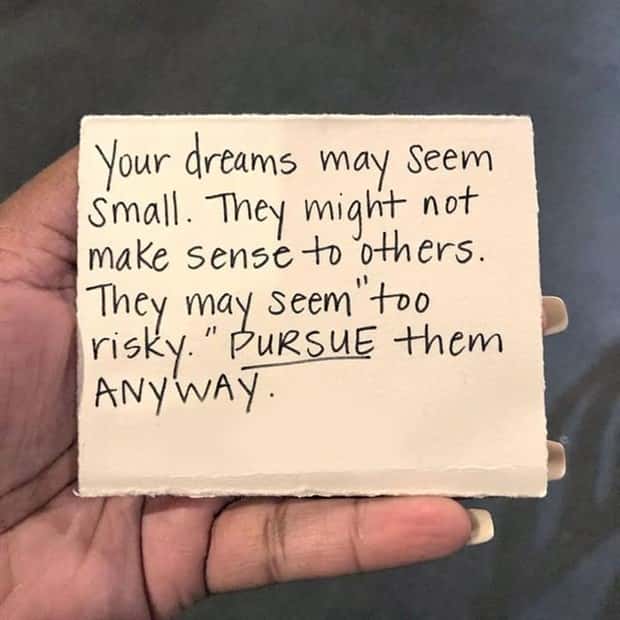 Your dreams may seem
small. They might not
make sense to others.
They may seem "too
risky." PURSUE them
ANYWAY.